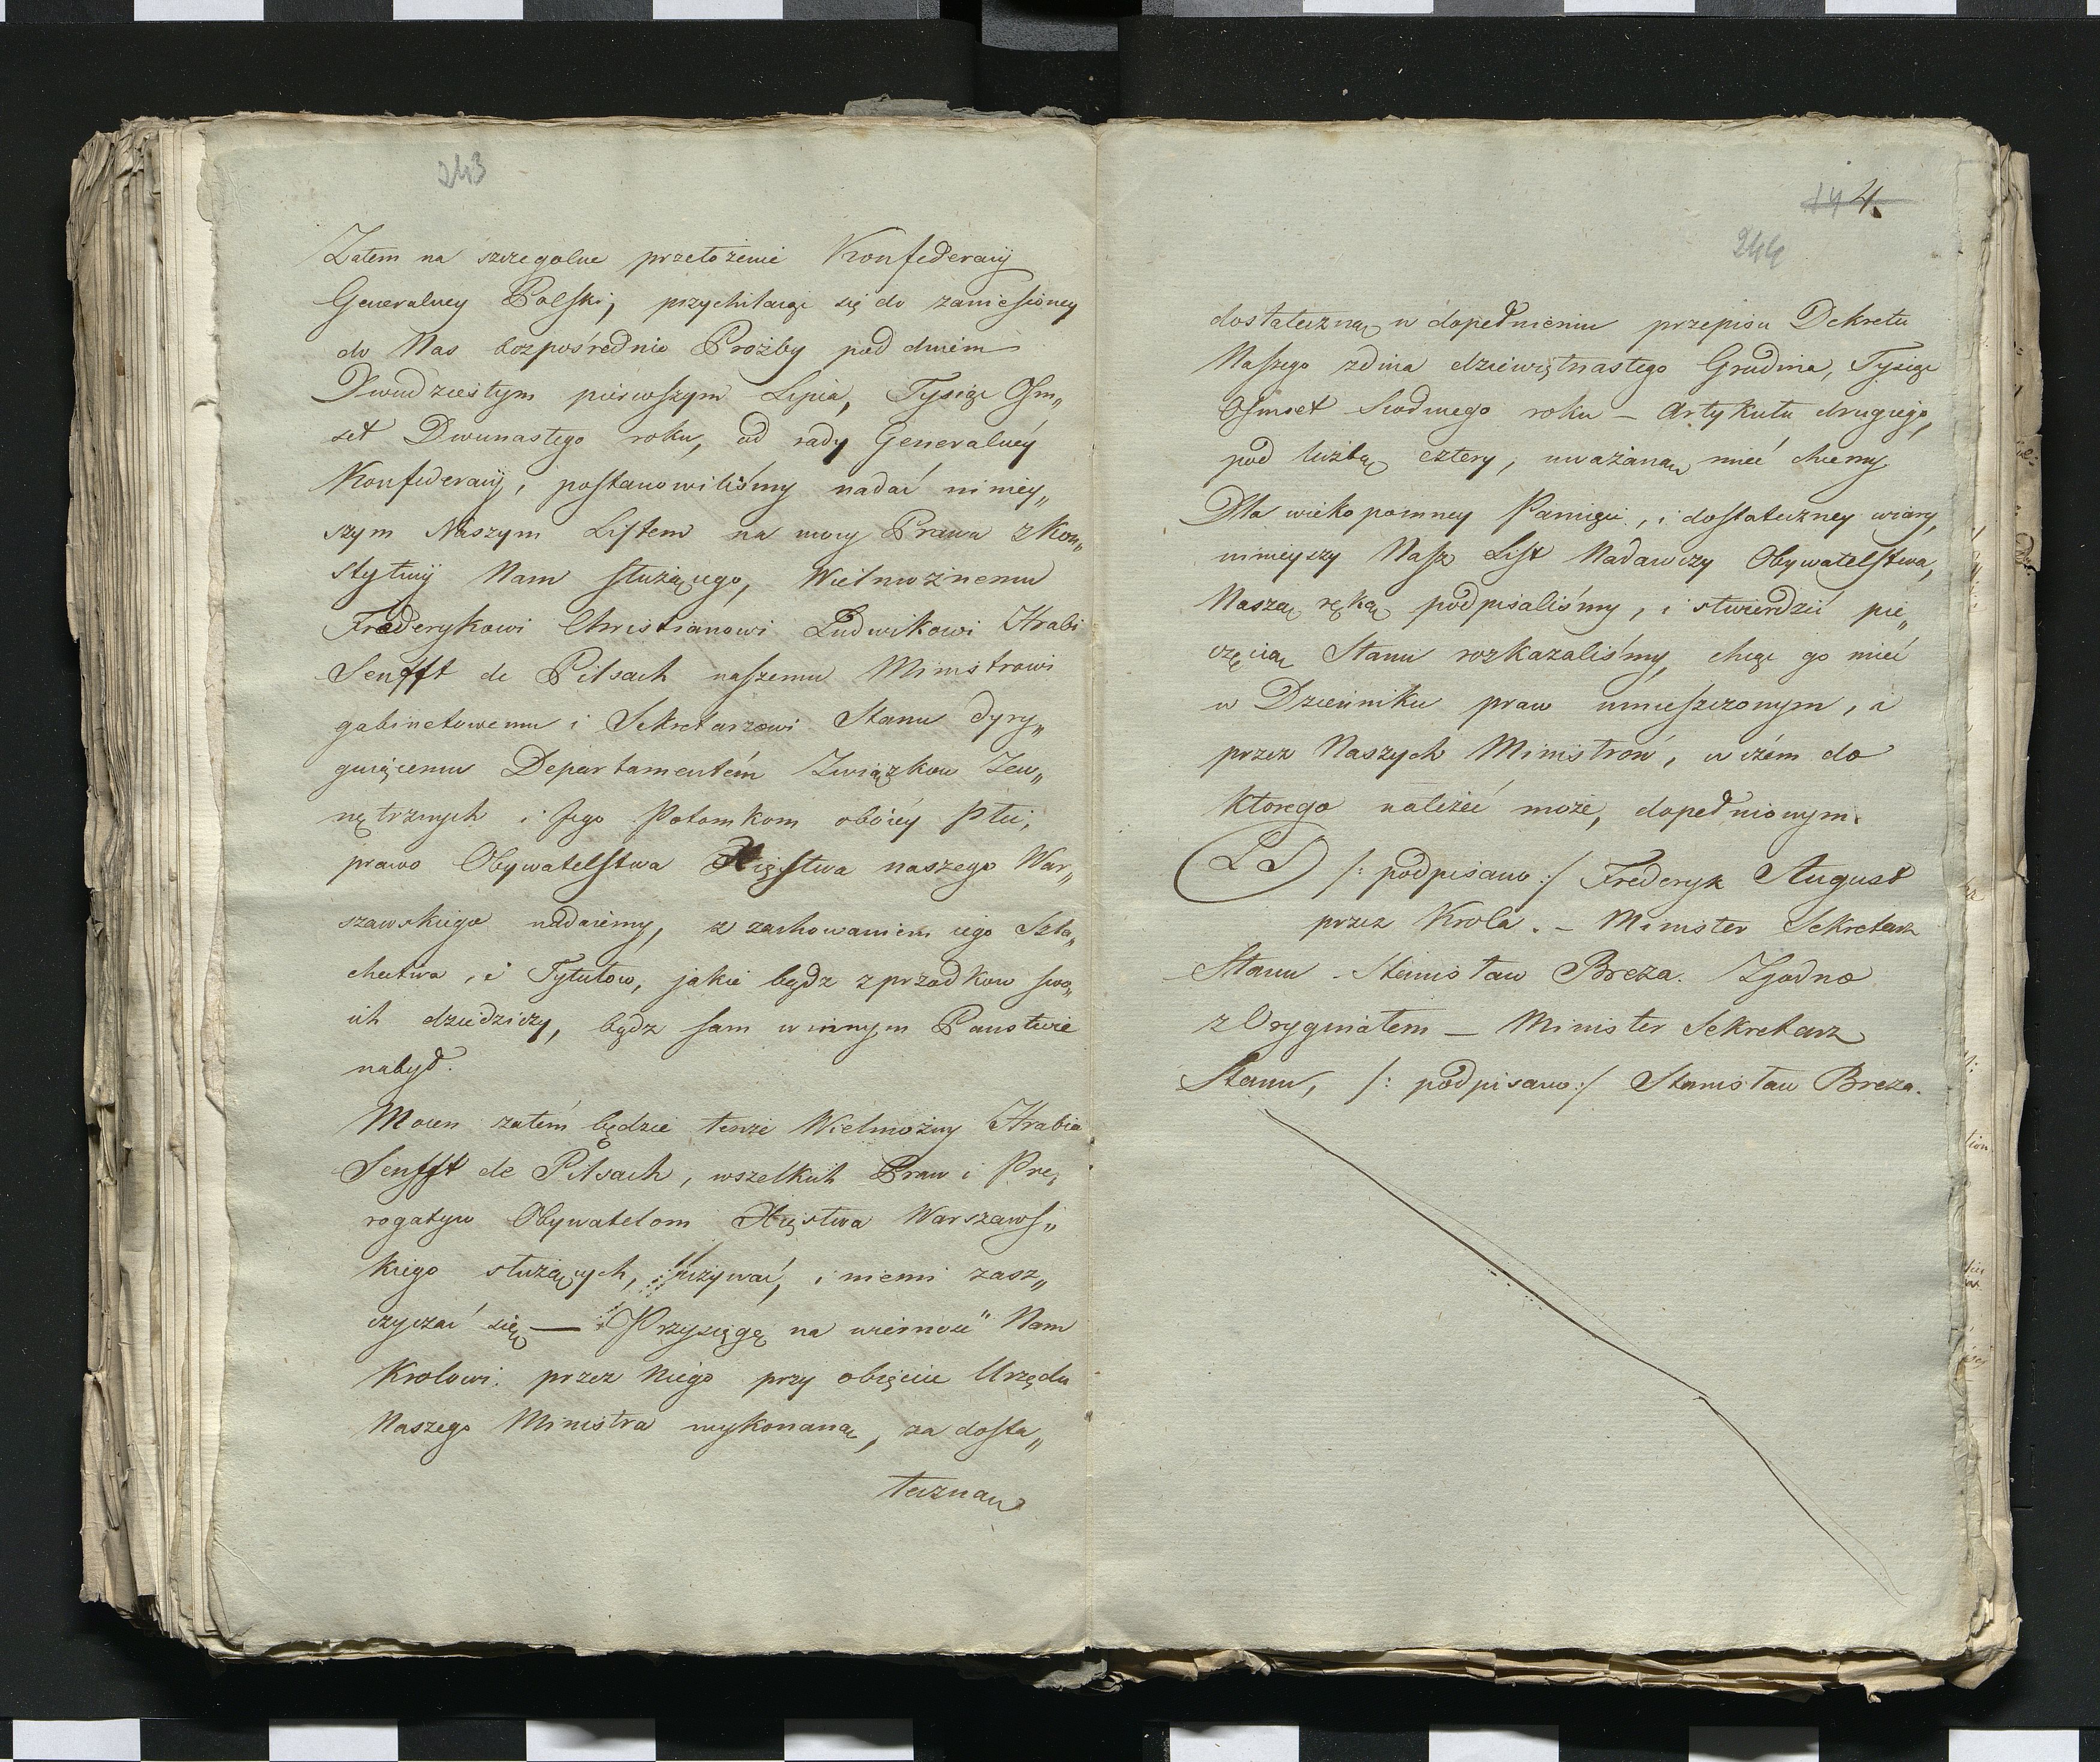 243
Zatem na szczegolne przełożenie Konfederacij
Generalney Polski, przychilaiąc się do zaniesioney
do Nas bezpośrednio Prożby pod dniem
Dwudziestym pierwszym Lipca, Tysiąc Osm„
set Dwunastego roku, od rady Generalnéy
Konfederacij, postanowiliśmy nadać niniey„
szym Naszym Listem na mocy Prawa z Kon„
stytucij Nam służącego, Wielmożnemu
Frederykowi Christianowi Ludwikowi Hrabi
Senfft de Pilsach naszemu Ministrowi
gabinetowemu i Sekretarzowi Stanu dyry„
guiącemu Departamentém Związkow Zew„
nętrznych i Jego Potomkom obóiéy Płci,
prawo Obywatelstwa Xięstwa naszego War„
szawskiego nadaiemy, z zachowaniem iego Szla„
chectwa, i Tytułow, jakie bądz z przodkow swo„
ich dziedziczy, bądz sam w innym Panstwie
nabył.
Mocen zatém będzie tenże Wielmożny Hrabia
Senfft de Pilsach, wszelkich Praw i Pre„
rogatyw Obywatelom Xięstwa Warszaws„
kiego służących, używać, i niemi zasz„
czyczać się — Przysięgę na wierność Nam
Krolowi przez Niego przy obięciu Urzędu
Naszego Ministra wykonaną, za dosta„
teczną
14 4.
244
dostateczną w dopełnieniu przepisu Dekretu
Naszego z dnia dziewiętnastego Grudnia, Tysiąc
Osmset Siodmego roku – Artykułu drugiego,
pod liczbą cztery, uważaną mieć chcemy.
Dla wiekopomney Pamięci, i dostateczney wiary,
ninieyszy Nasz List Nadawczy Obywatelstwa,
Naszą ręką podpisaliśmy, i stwierdzić pie„
częcią Stanu rozkazaliśmy, chcąc go mieć
w Dzienniku praw umieszczonym, i
przez Naszych Ministrow, w czém do
ktorego należeć może, dopełnionym.
LS /: podpisano :/ Frederyk August
przez Krola. – Minister Sekretarz
Stanu Stanisław Breza. Zgodno
z Oryginałem – Minister Sekretarz
Stanu, /: podpisano :/ Stanisław Breza.